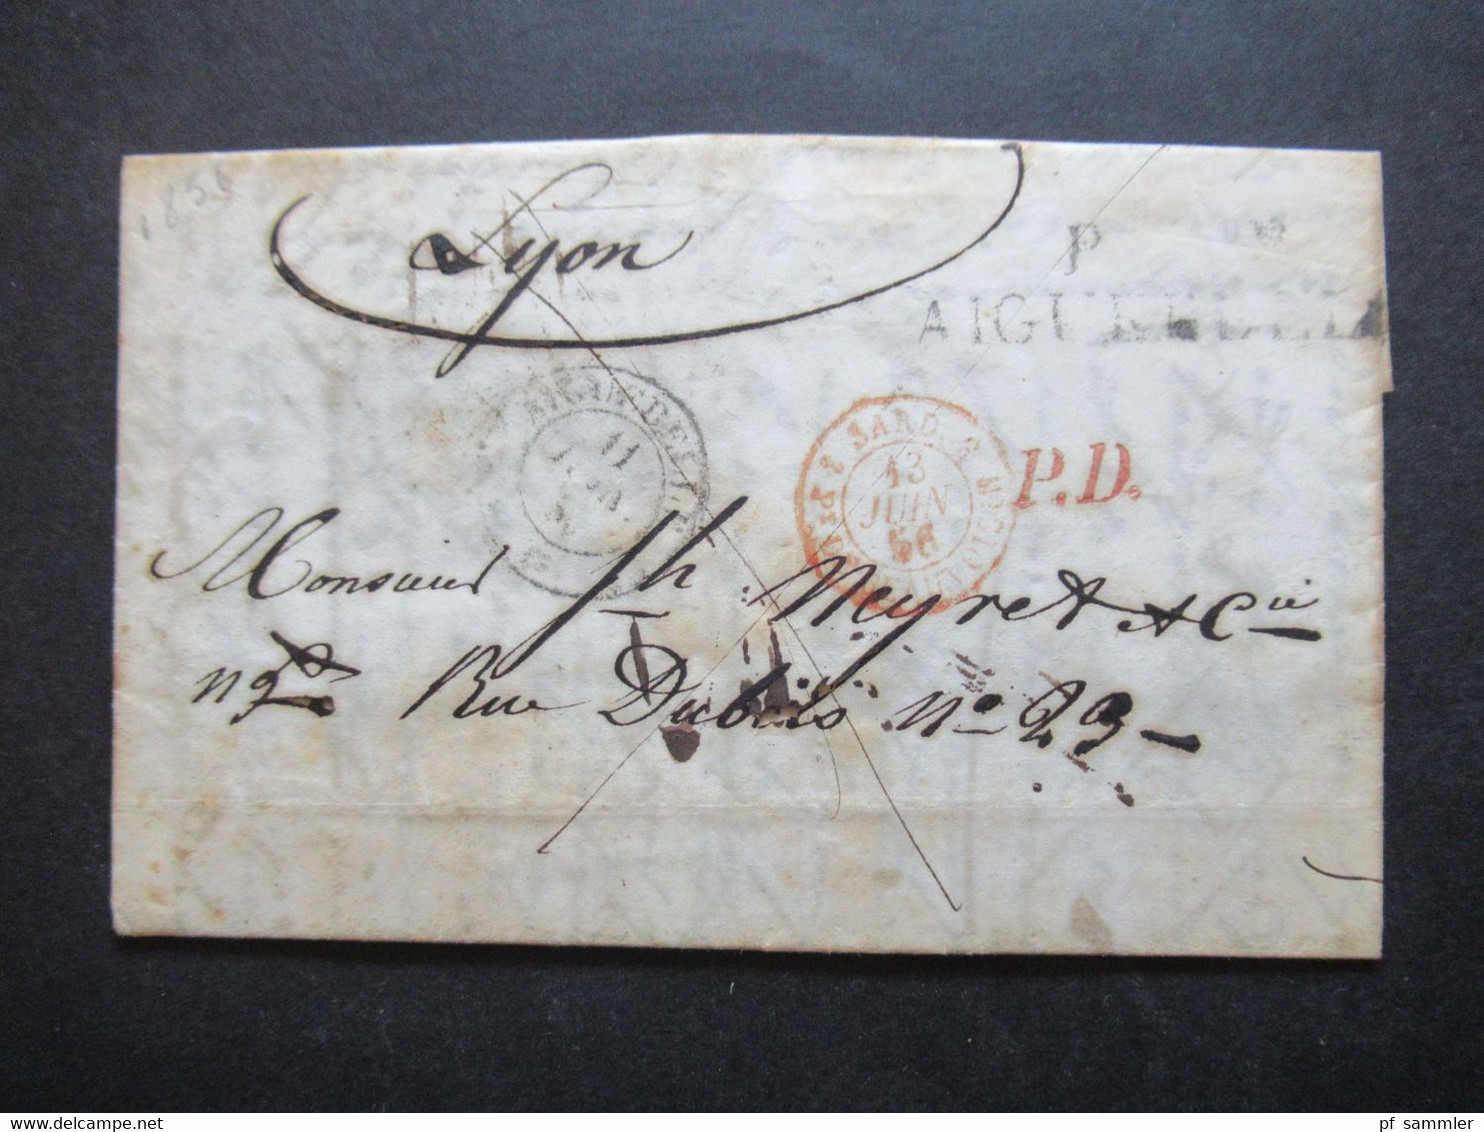 1856
Lyon
P
AIGUEBELLE
AIGUEBELLE
11
13
JUIN
56
SARD.
P.D.
Monsieur Jh Meyret & Cie
ngt Rue Dubois No 29
www.delcampe.net
pf sammler